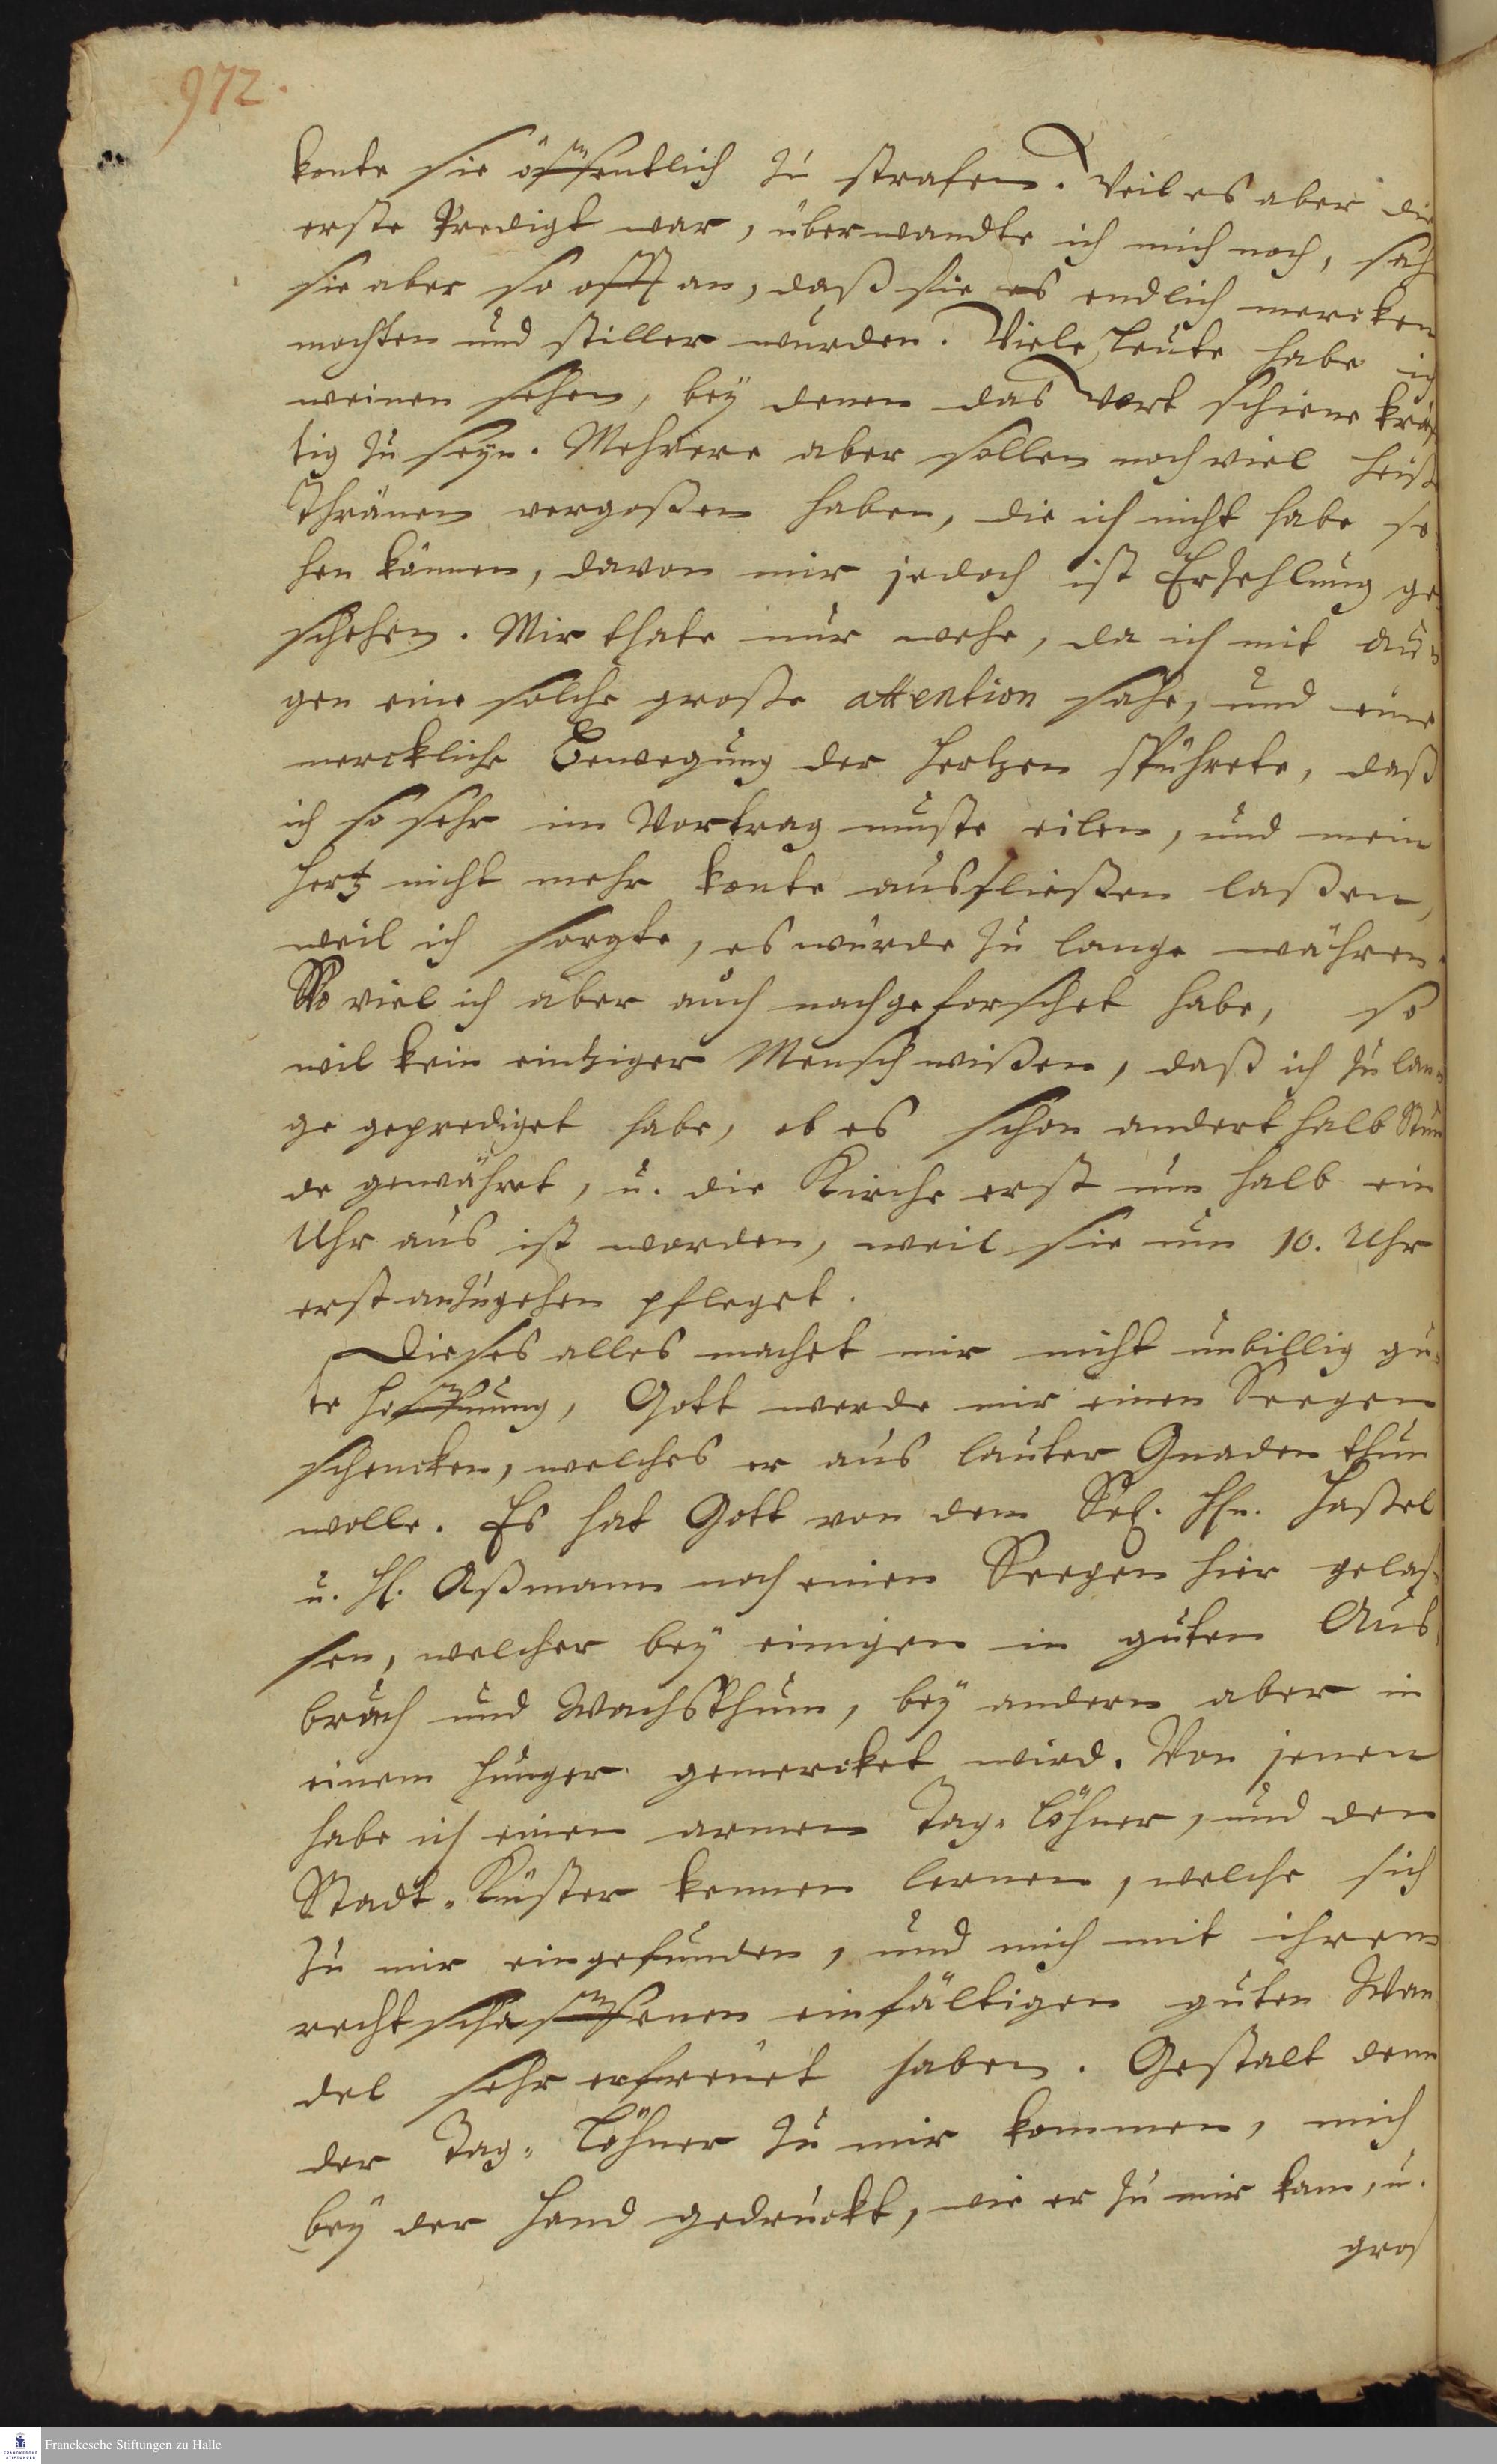 972.
konte sie öffentlich zu strafen. Weil es aber die
erste Predigt war, überwandte ich mich noch, sah
sie aber so offt an, daß sie es endlich mercken
mochten und stiller wurden. Viele Leute habe ich
weinen sehen, bey denen das Wort schiene kräf
tig zu seyn. Mehrere aber sollen noch viel heiße
Thränen vergoßen haben, die ich nicht habe se-
hen können, davon mir jedoch ist Erzehlung ge-
schehen. Mir thate nur wehe, da ich mit Au-
gen eine solche große attention sahe, und eine
merckliche Bewegung der Hertzen spührete, daß
ich so sehr im Vortrag muste eilen, und mein
Hertz nicht mehr konte ausfließen laßen,
weil ich sorgte, es würde zu lange währen.
So viel ich aber auch nachgeforschet habe, so
wil kein eintziger Mensch wißen, daß ich zu lan-
ge geprediget habe, ob es schon anderthalb Stun
de gewähret, u. die Kirche erst um halb ein
Uhr aus ist worden, weil sie um 10. Uhr
erst anzugehen pfleget.
Dieses alles machet mir nicht unbillig gu-
te Hoffnung, Gott werde mir einen Seegen
schencken, welches er aus lauter Gnaden thun
wolle. Es hat Gott von dem Sel. Hn. Haßel
u. H. Aßmann noch einen Seegen hier gelas-
sen, welcher bey einigen in guten Aus
bruch und Wachsthum, bey andern aber in
einem Hunger gemercket wird. Von jenen
habe ich einen armen Tag-Löhner, und den
Stadt-Küster kennen lernen, welche sich
zu mir eingefunden, und mich mit ihrem
rechtschaffenen einfältigen guten Wan
del sehr erfreuet haben. Gestalt denn
der Tag-Löhner zu mir kommen, mich
bey der Hand gedruckt, wie er zu mir kam, u.
gros
Franckesche Stiftungen zu Halle